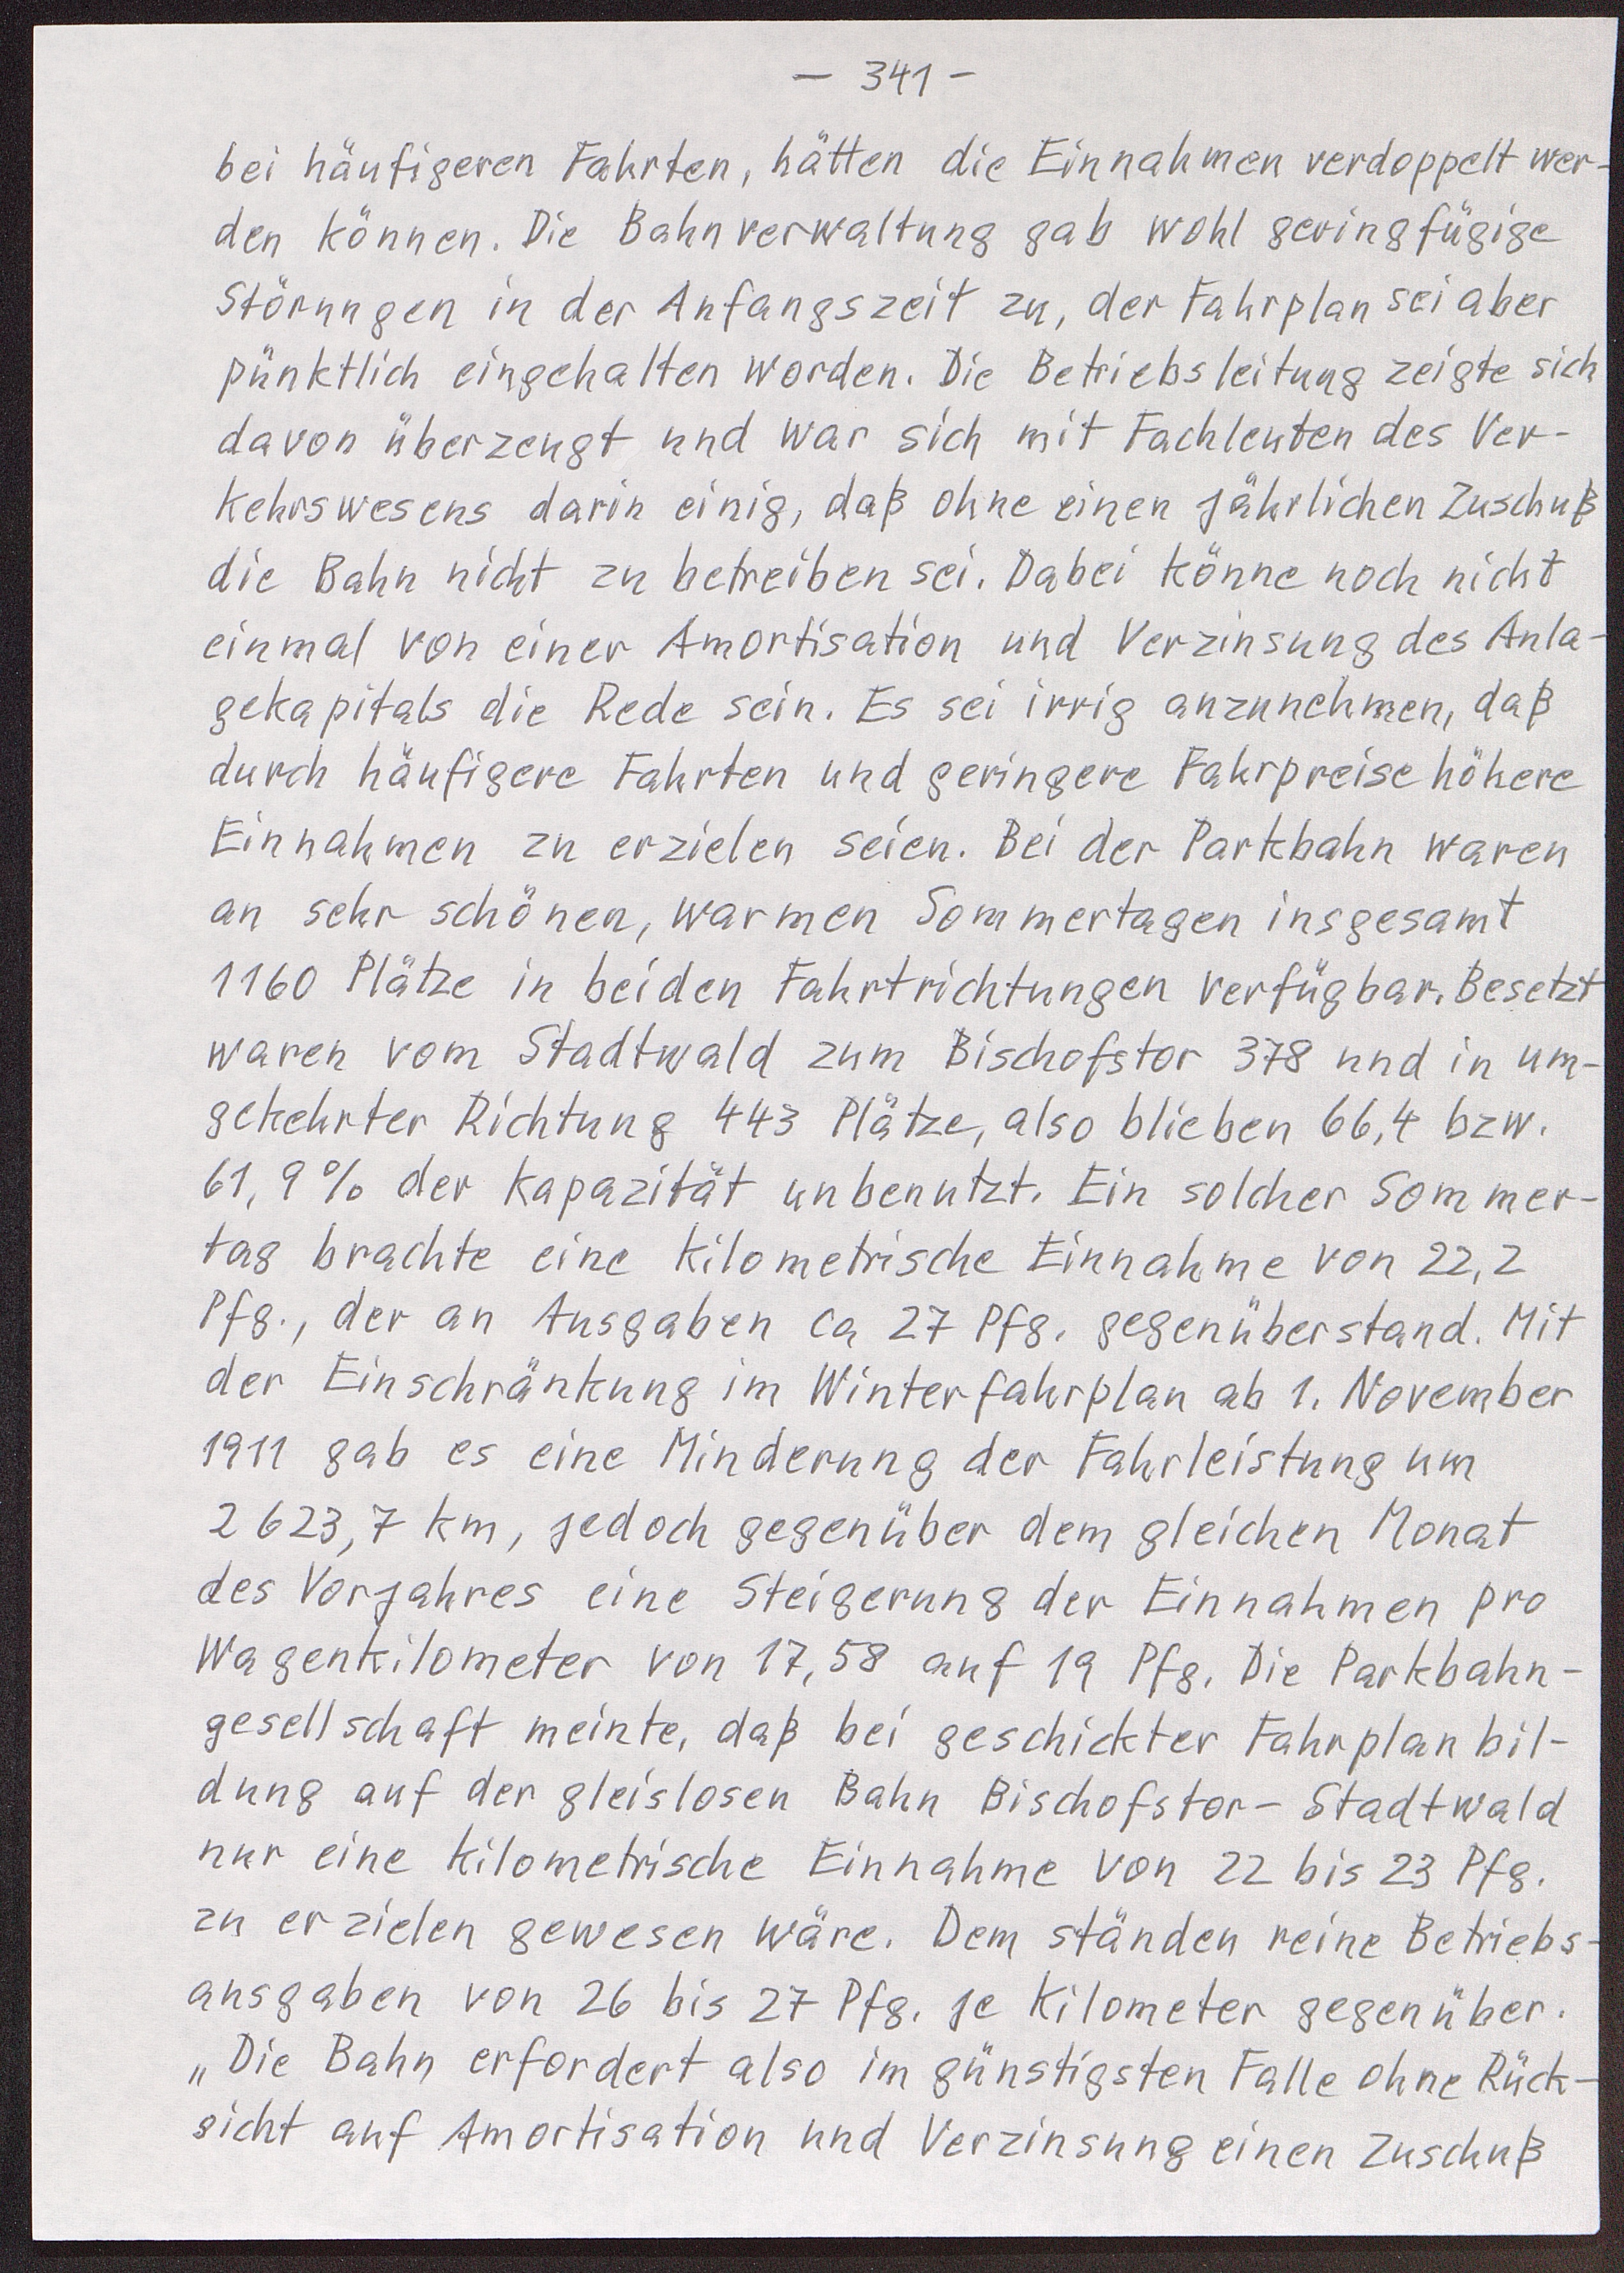 — 341 –
bei häufigeren Fahrten, hätten die Einnahmen verdoppelt wer-
den können. Die Bahnverwaltung gab wohl geringfügige
Störungen in der Anfangszeit zu, der Fahrplan sei aber
pünktlich eingehalten worden. Die Betriebsleitung zeigte sich
davon überzeugt und war sich mit Fachleuten des Ver-
kehrswesens darin einig, daß ohne einen jährlichen Zuschuß
die Bahn nicht zu betreiben sei. Dabei könne noch nicht
einmal von einer Amortisation und Verzinsung des Anla-
gekapitals die Rede sein. Es sei irrig anzunehmen, daß
durch häufigere Fahrten und geringere Fahrpreise höhere
Einnahmen zu erzielen seien. Bei der Parkbahn waren
an sehr schönen, warmen Sommertagen insgesamt
1160 Plätze in beiden Fahrtrichtungen verfügbar. Besetzt
waren vom Stadtwald zum Bischofstor 378 und in um-
gekehrter Richtung 443 Plätze, also blieben 66,4 bzw.
61,9 % der Kapazität unbenutzt. Ein solcher Sommer-
tag brachte eine kilometrische Einnahme von 22,2
Pfg., der an Ausgaben ca 27 Pfg. gegenüberstand. Mit
der Einschränkung im Winterfahrplan ab 1. November
1911 gab es eine Minderung der Fahrleistung um
2 623,7 km, jedoch gegenüber dem gleichen Monat
des Vorjahres eine Steigerung der Einnahmen pro
Wagenkilometer von 17,58 auf 19 Pfg. Die Parkbahn-
gesellschaft meinte, daß bei geschickter Fahrplanbil-
dung auf der gleislosen Bahn Bischofstor – Stadtwald
nur eine kilometrische Einnahme von 22 bis 23 Pfg.
zu erzielen gewesen wäre. Dem ständen reine Betriebs-
ausgaben von 26 bis 27 Pfg. je Kilometer gegenüber.
„Die Bahn erfordert also im günstigsten Falle ohne Rück-
sicht auf Amortisation und Verzinsung einen Zuschuß